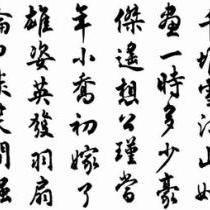 千堆雪江山如
畫一時多少豪
傑遙想公瑾當
年小喬初嫁了
雄姿英發羽扇
綸巾談笑間强